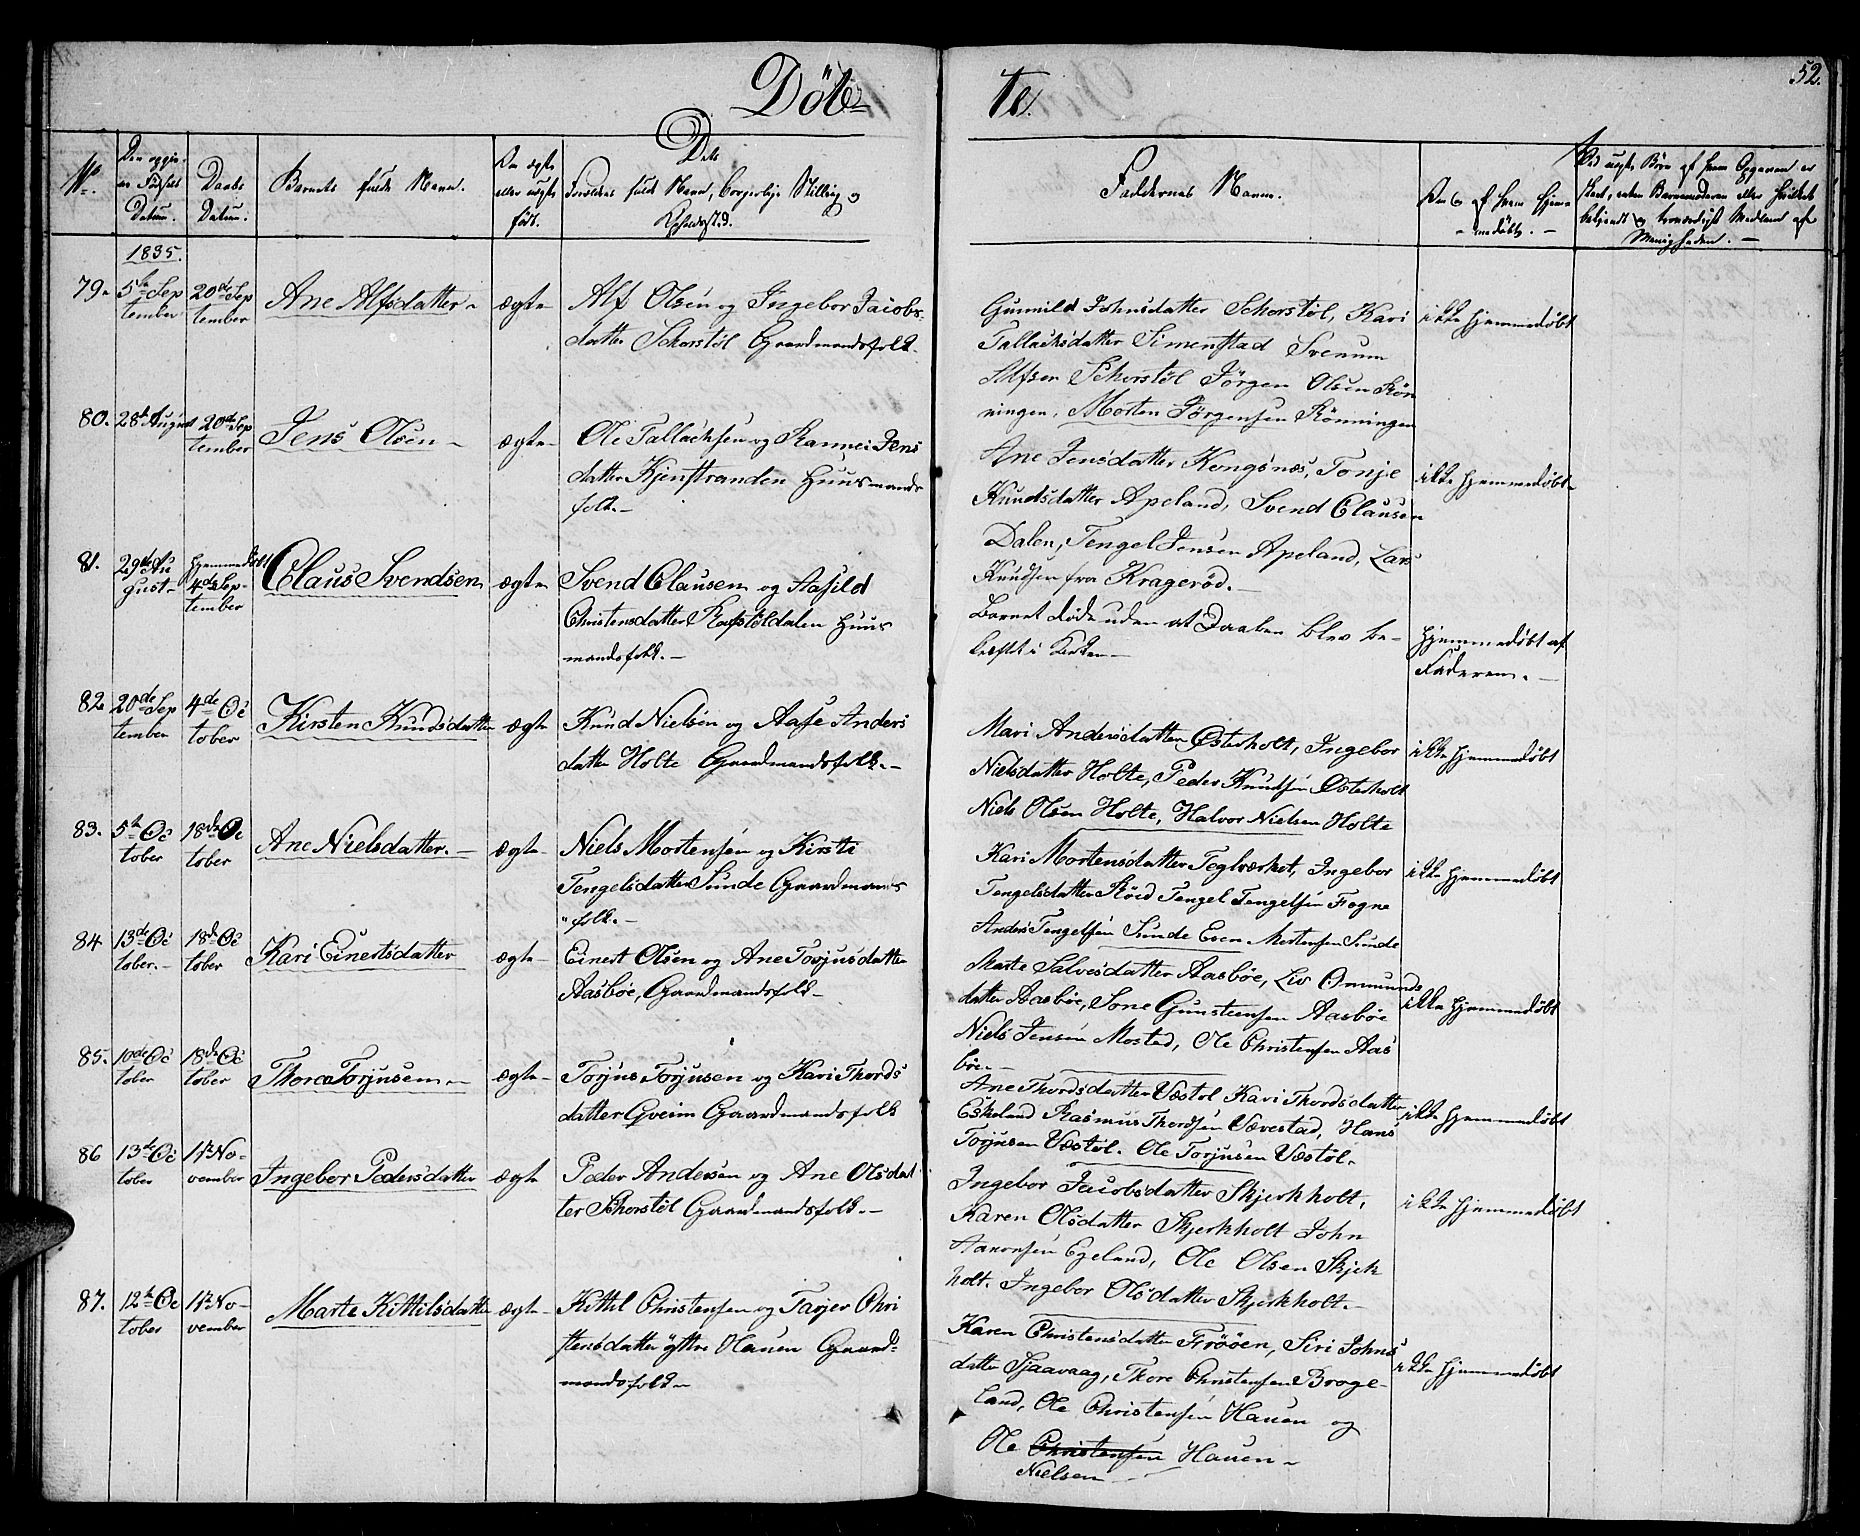 Döb-
te.
52.
No.
Den opgiv-
ne Födsels
Datum.
Daabs
Datum.
Barnets fulde Navn.
Om ægte
eller uægte
født.
Dets
Forældres fulde Navn, borgerlige Stilling og
Opholdssted.
Faddernes Navne.
Om og af hvem hjem-
medöbt.
Ved uægte Börn af hvem Opgaven er
skeet, enten Barnemoderen eller hvilket
bekjendt og troværdigt Medlem af
Menigheden.
1835.
79.
5te Sep
tember
20de Sep
tember
Ane Alfsdatter
ægte
Alf Olsen og Ingebor Jacobs-
datter Skorstøl Gaardmandsfolk.
Gunnild Johnsdatter Schorstøl, Kari
Tallacksdatter Simenstad Svenum
Alfsen Schorstøl Jörgen Olsen Rön
ningen, Morten Jörgensen Rönningen
ikke hjemmedøbt
80.
28de August
20de Sep
tember
Jens Olsen
ægte
Ole Tallacksen og Rannei Jens
datter Kjenstranden Huusmands
folk.
Ane Jensdatter Kongsnæs, Tonje
Knudsdatter Apeland, Svend Clausen
Dalen, Tengel Jensen Apeland, Lars
Knudsen fra Kragerød.
ikke hjemmedøbt
81.
29de Au
gust
hjemmedøbt
4de Sep-
tember
Claus Svendsen
ægte
Svend Clausen og Aasild
Christensdatter Rafstøldalen Huus
mandsfolk.
Barnet døde uden at Daaben blev be-
kræftet i Kirken
hjemmedøbt af
Faderen.
82
20de Sep
tember
4de Oc
tober
Kirsten Knudsdatter
ægte
Knud Nielsen og Aase Anders
datter Holte Gaardmandsfolk.
Mari Andersdatter Østerholt, Ingebor
Nielsdatter Holte, Peder Knudsen Østerholt
Niels Olsen Holte, Halvor Nielsen Holte
ikke hjemmedøbt
83.
5te Oc
tober
18de Oc
tober
Ane Nielsdatter.
ægte
Niels Mortensen og Kirsti
Tengelsdatter Sunde Gaardmands
folk.
Kari Mortensdatter Teglværket, Ingebor
Tengelsdatter Röed Tengel Tengelsen Fogne
Anders Tengelsen Sunde Even Mortensen Sunde
ikke hjemmedøbt
84
13de Oc
tober.
18de Oc
tober
Kari Einertsdatter
ægte
Einert Olsen og Ane Torjusdatter
Aasbøe, Gaardmandsfolk
Marte Salvesdatter Aasbøe, Liv Ommunds
datter Aasbøe, Sone Gunsteensen Aasbøe
Niels Jensen Mostad, Ole Christensen Aas
bøe.
ikke hjemmedøbt
85.
10de Oc
tober
18de Oc
tober
Thore Torjusen
ægte
Torjus Torjusen og Kari Thords
datter Gveim Gaardmandsfolk
Ane Thordsdatter Væstøl Kari Thordsdatter
Eskeland Rasmus Thordsen Vævestad, Hans
Torjusen Væstøl. Ole Torjusen Væstøl.
ikke hjemmedøbt
86
13de Oc
tober
1te No-
vember
Ingebor Pedersdatter
ægte
Peder Andersen og Ane Olsdat
ter Skorstøl Gaardmandsfolk.
Ingebor Jacobsdatter Skjerkholt,
Karen Olsdatter Skjerkholt John
Aanonsen Egeland, Ole Olsen Skjerk
holt. Ingebor Olsdatter Skjerkholt.
ikke hjemmedøbt
87.
12te Oc
tober
1te No-
vember
Marte Kittilsdatter
ægte
Kittil Christensen og Tarjer Chri
stensdatter yttre Hauen Gaard-
mandsfolk
Karen Christensdatter Frööen, Siri Johns
datter Sjaavaag, Thore Christensen Broge-
land, Ole Christensen Hauen og
Ole Christensen Hauen
Nielsen
ikke hjemmedøbt